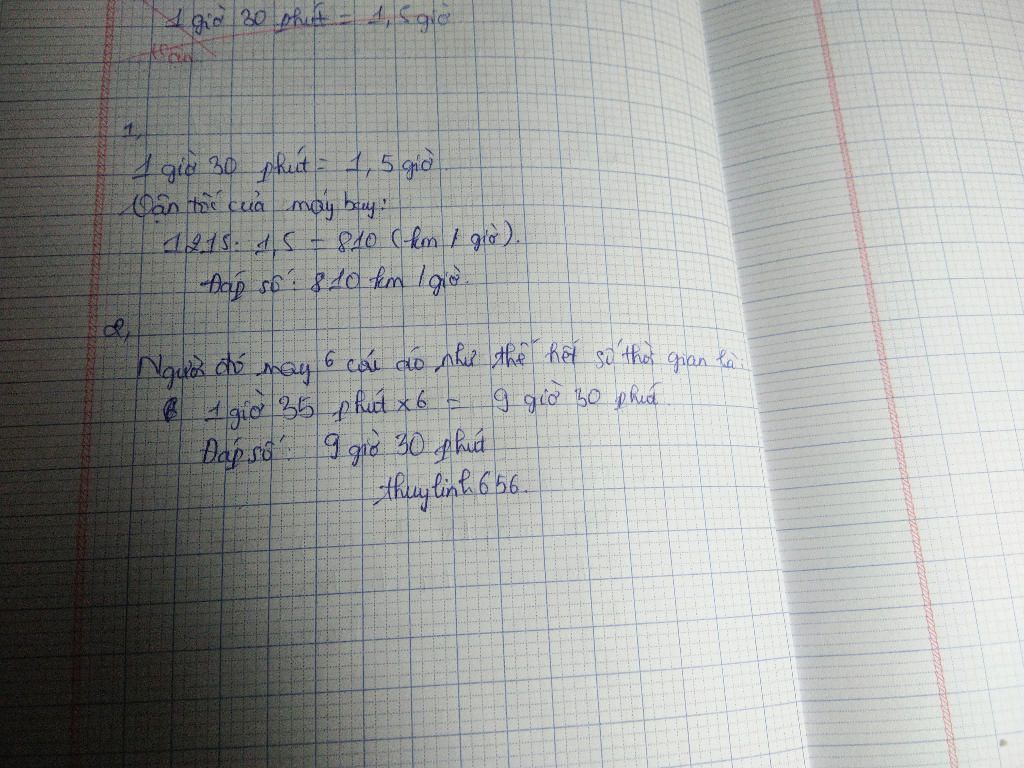 1 giờ 30 phút = 1,5 giờ
Vận
1,
1 giờ 30 phút = 1,5 giờ.
Vận tốc của máy bay:
1215 : 1,5 = 810 (km / giờ).
Đáp số : 810 km / giờ.
2,
Người đó may 6 cái áo như thế hết số thời gian là
1 giờ 35 phút x 6 = 9 giờ 30 phút
Đáp số : 9 giờ 30 phút
thuylinh656.